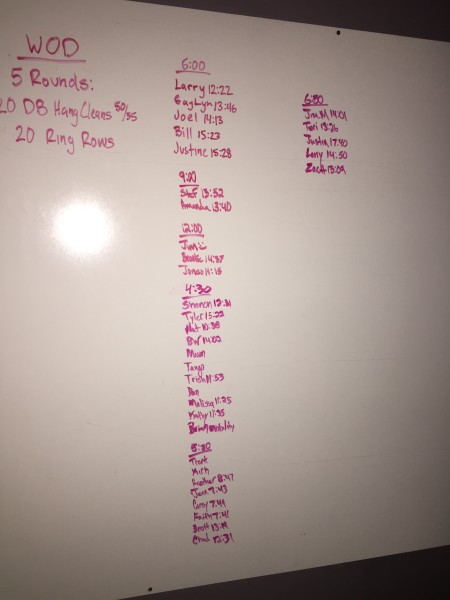 WOD
5 Rounds:
20 DB Hang Cleans 50/35
20 Ring Rows
6:00
Larry 12:22
GayLyn 13:46
Joel 14:13
Bill 15:23
Justine 15:28
9:00
Stef 13:52
Amanda 13:40
12:00
Jim
14:37
Jonas 11:15
4:30
Shannon 12:31
Tyler 15:22
Mat 10:38
BW 14:02
Moon
Tanya
Trish 11:53
Dan
Melissa 11:25
Kathy 11:35
mobility
5:30
Trent
Mich
Heather 8:47
Jack 7:43
Corry 7:44
Faith 7:41
Brett 13:19
Chad 12:31
6:30
Jim M 14:01
Tori 13:26
Justin 17:40
Leny 14:50
Zach 13:09